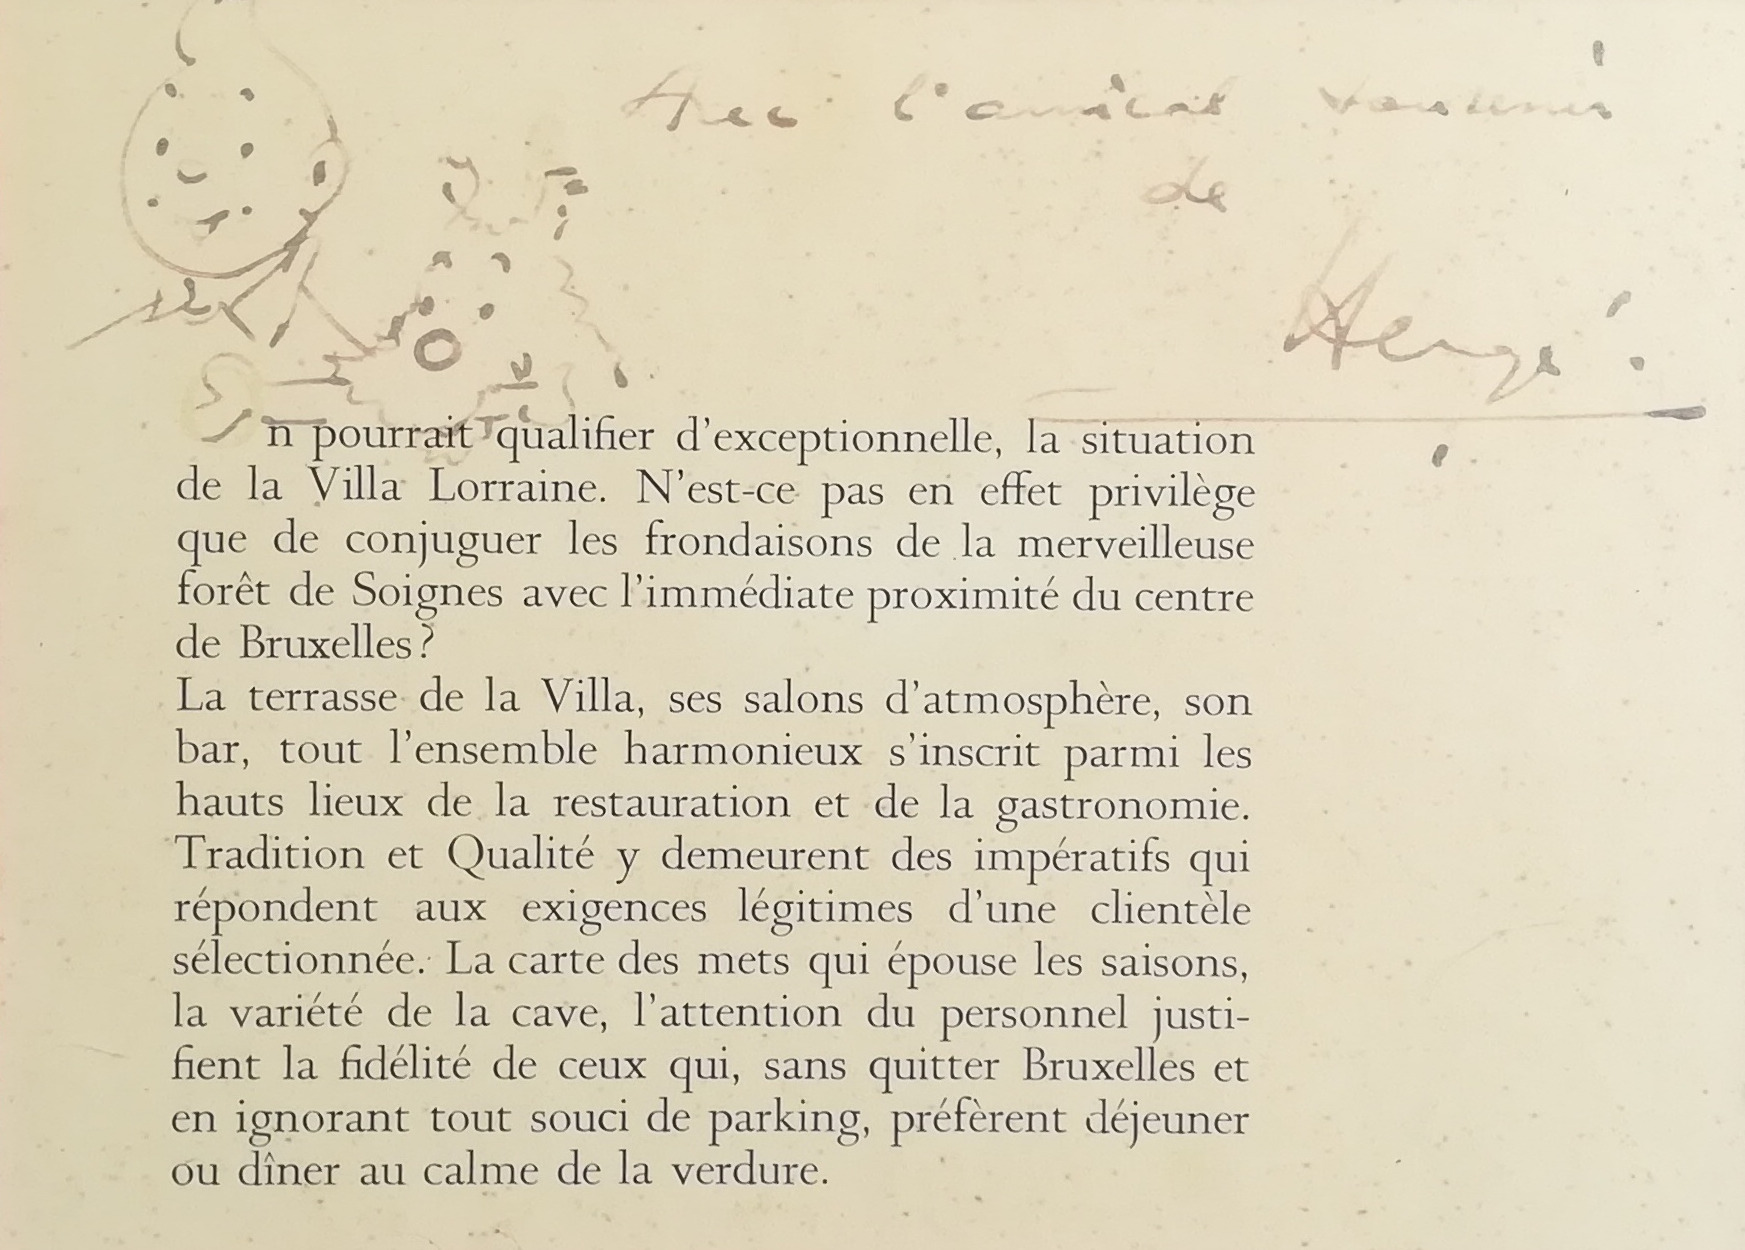 Avec l'amical souvenir
de
Hergé.
n pourrait qualifier d'exceptionnelle, la situation
de la Villa Lorraine. N'est-ce pas en effet privilège
que de conjuguer les frondaisons de la merveilleuse
forêt de Soignes avec l'immédiate proximité du centre
de Bruxelles?
La terrasse de la Villa, ses salons d'atmosphère, son
bar, tout l'ensemble harmonieux s'inscrit parmi les
hauts lieux de la restauration et de la gastronomie.
Tradition et Qualité y demeurent des impératifs qui
répondent aux exigences légitimes d'une clientèle
sélectionnée. La carte des mets qui épouse les saisons,
la variété de la cave, l'attention du personnel justi-
fient la fidélité de ceux qui, sans quitter Bruxelles et
en ignorant tout souci de parking, préfèrent déjeuner
ou dîner au calme de la verdure.